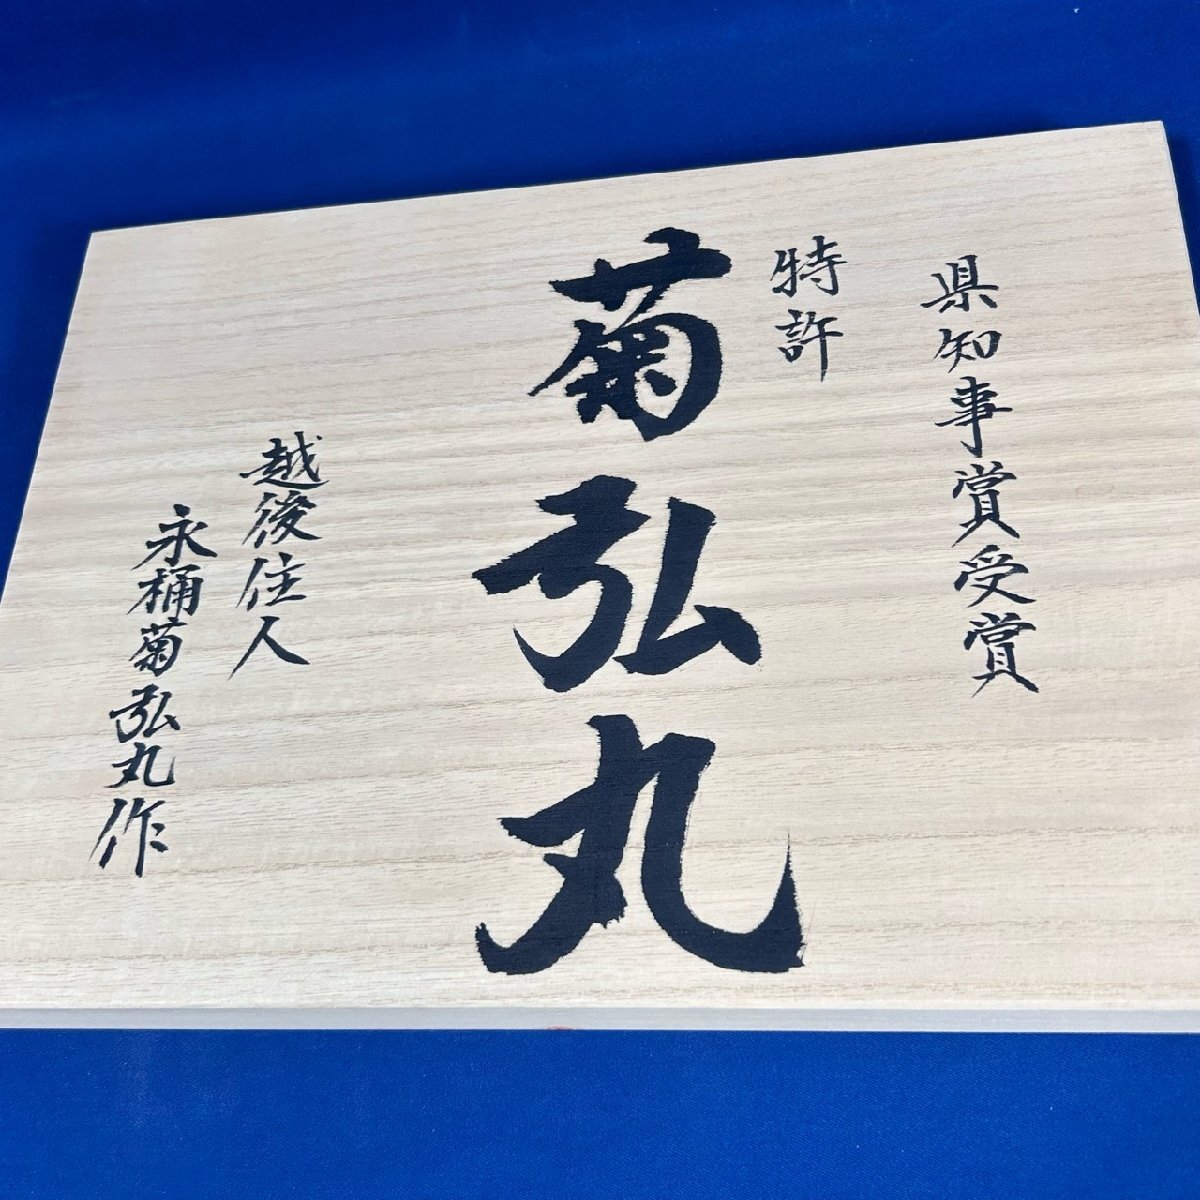 県知事賞受賞
特許
菊弘丸
越後住人
永桶菊弘丸作